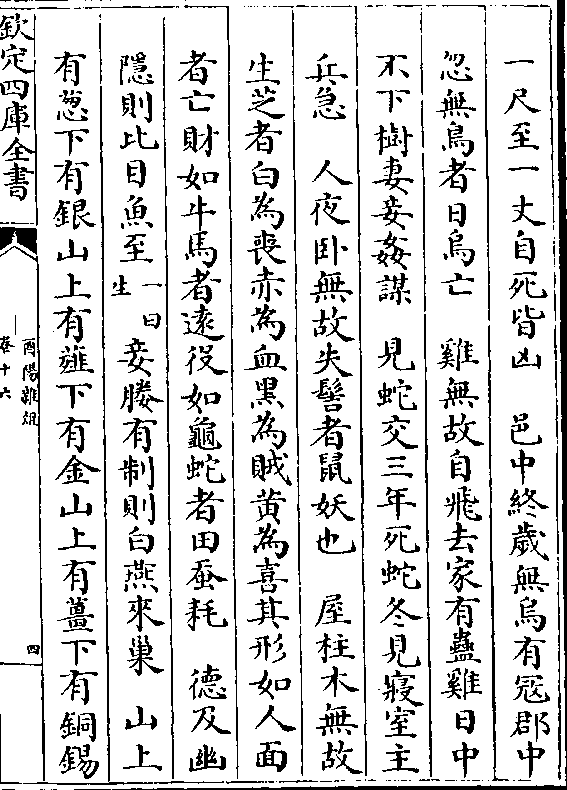 一尺至一丈自死皆凶　邑中終歲無烏有冦郡中
忽無烏者日烏亡　雞無故自飛去家有蠱雞日中
不下樹妻妾姦謀　見蛇交三年死蛇冬見寢室主
兵急　人夜卧無故失髻者鼠妖也　屋柱木無故
生芝者白為喪赤為血黑為賊黄為喜其形如人面
者亡財如牛馬者逺役如龜蛇者田蚕耗　德及幽
隱則比目魚至一曰生妾媵有制則白燕來巢　山上
有葱下有銀山上有薤下有金山上有薑下有銅錫
欽定四庫全書
酉陽雜俎
卷十六
四